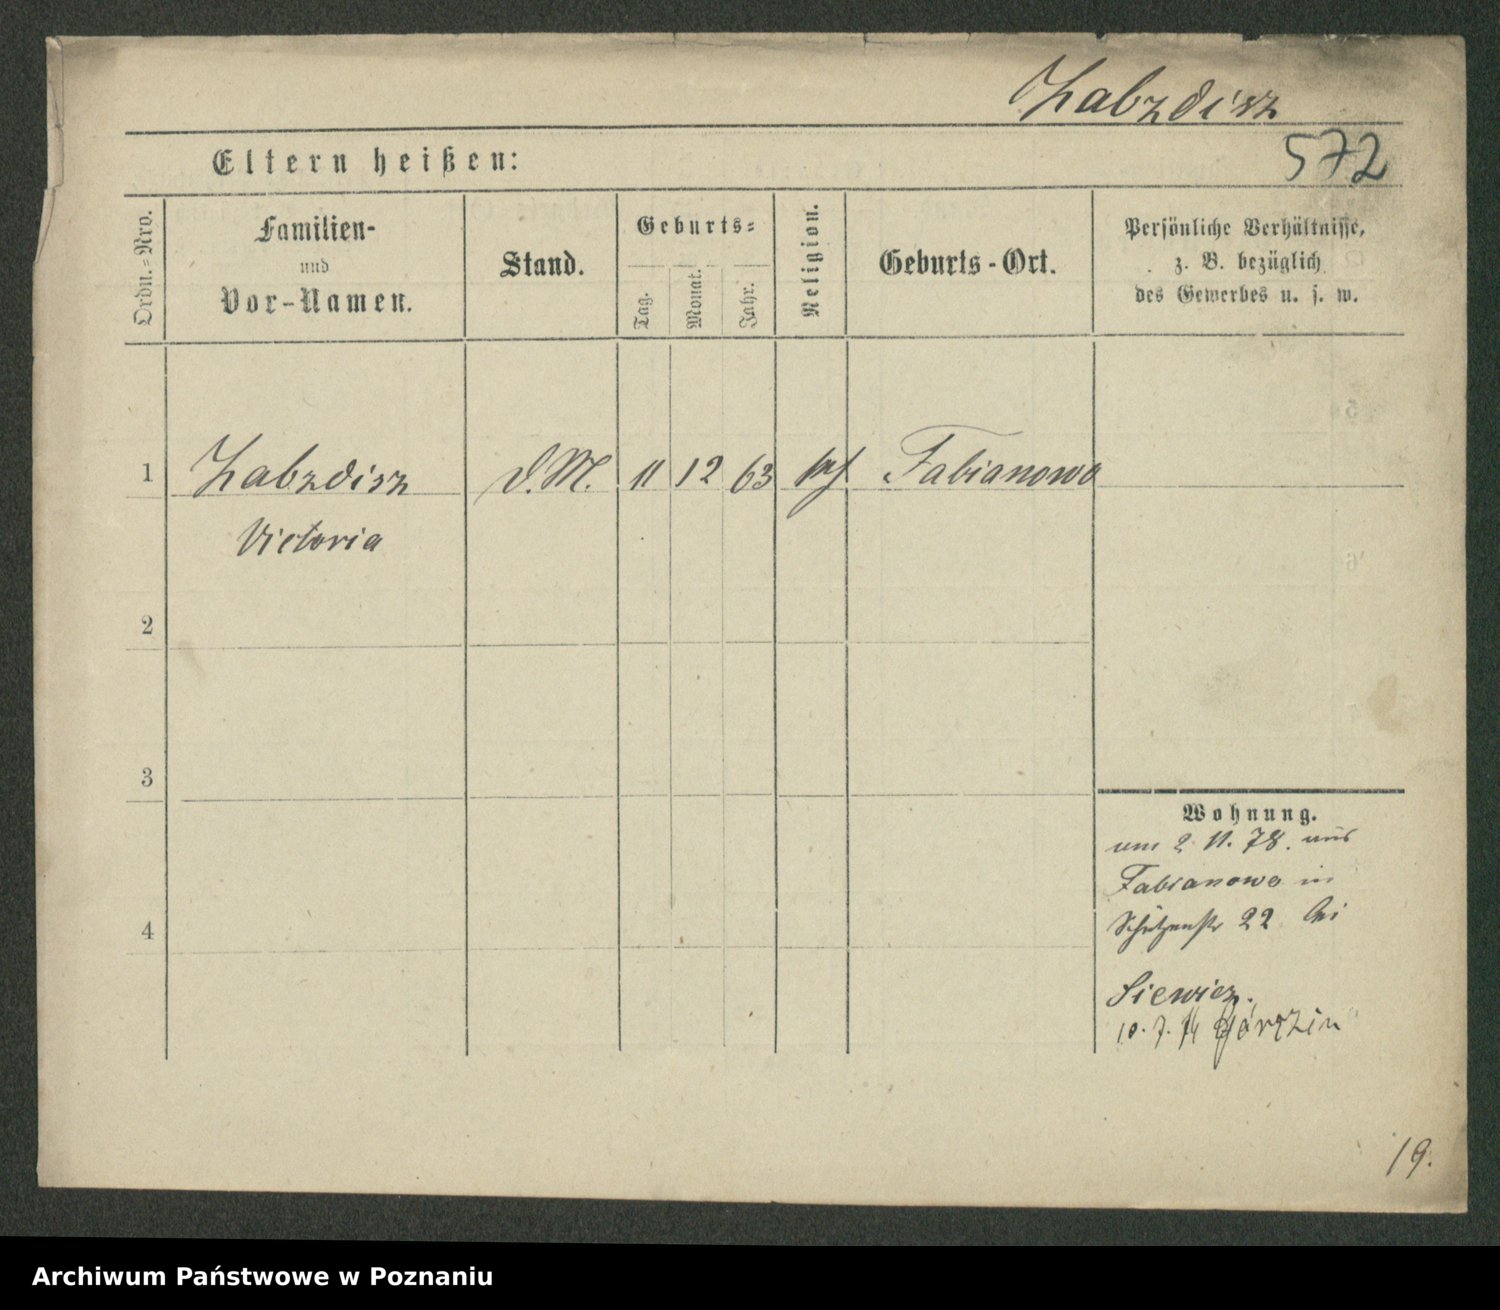 Zabzdisz
572
Eltern heißen:
Ordn.=Nro.
Familien-
und
Vor-Namen.
Stand.
Geburts=
Tag.
Monat.
Jahr.
Religion.
Geburts-Ort.
Persönliche Verhältnisse,
z. B. bezüglich
des Gewerbes u. s. w.
1 Zabzdisz D.M. 11 12 63 Fabianowo
Victoria
2
3
4
Wohnung.
am 2 11. 78. aus
Fabianowo in
Schützenstr 22 bei
Siewicz.
10. 7. Górczin
19.
Archiwum Państwowe w Poznaniu